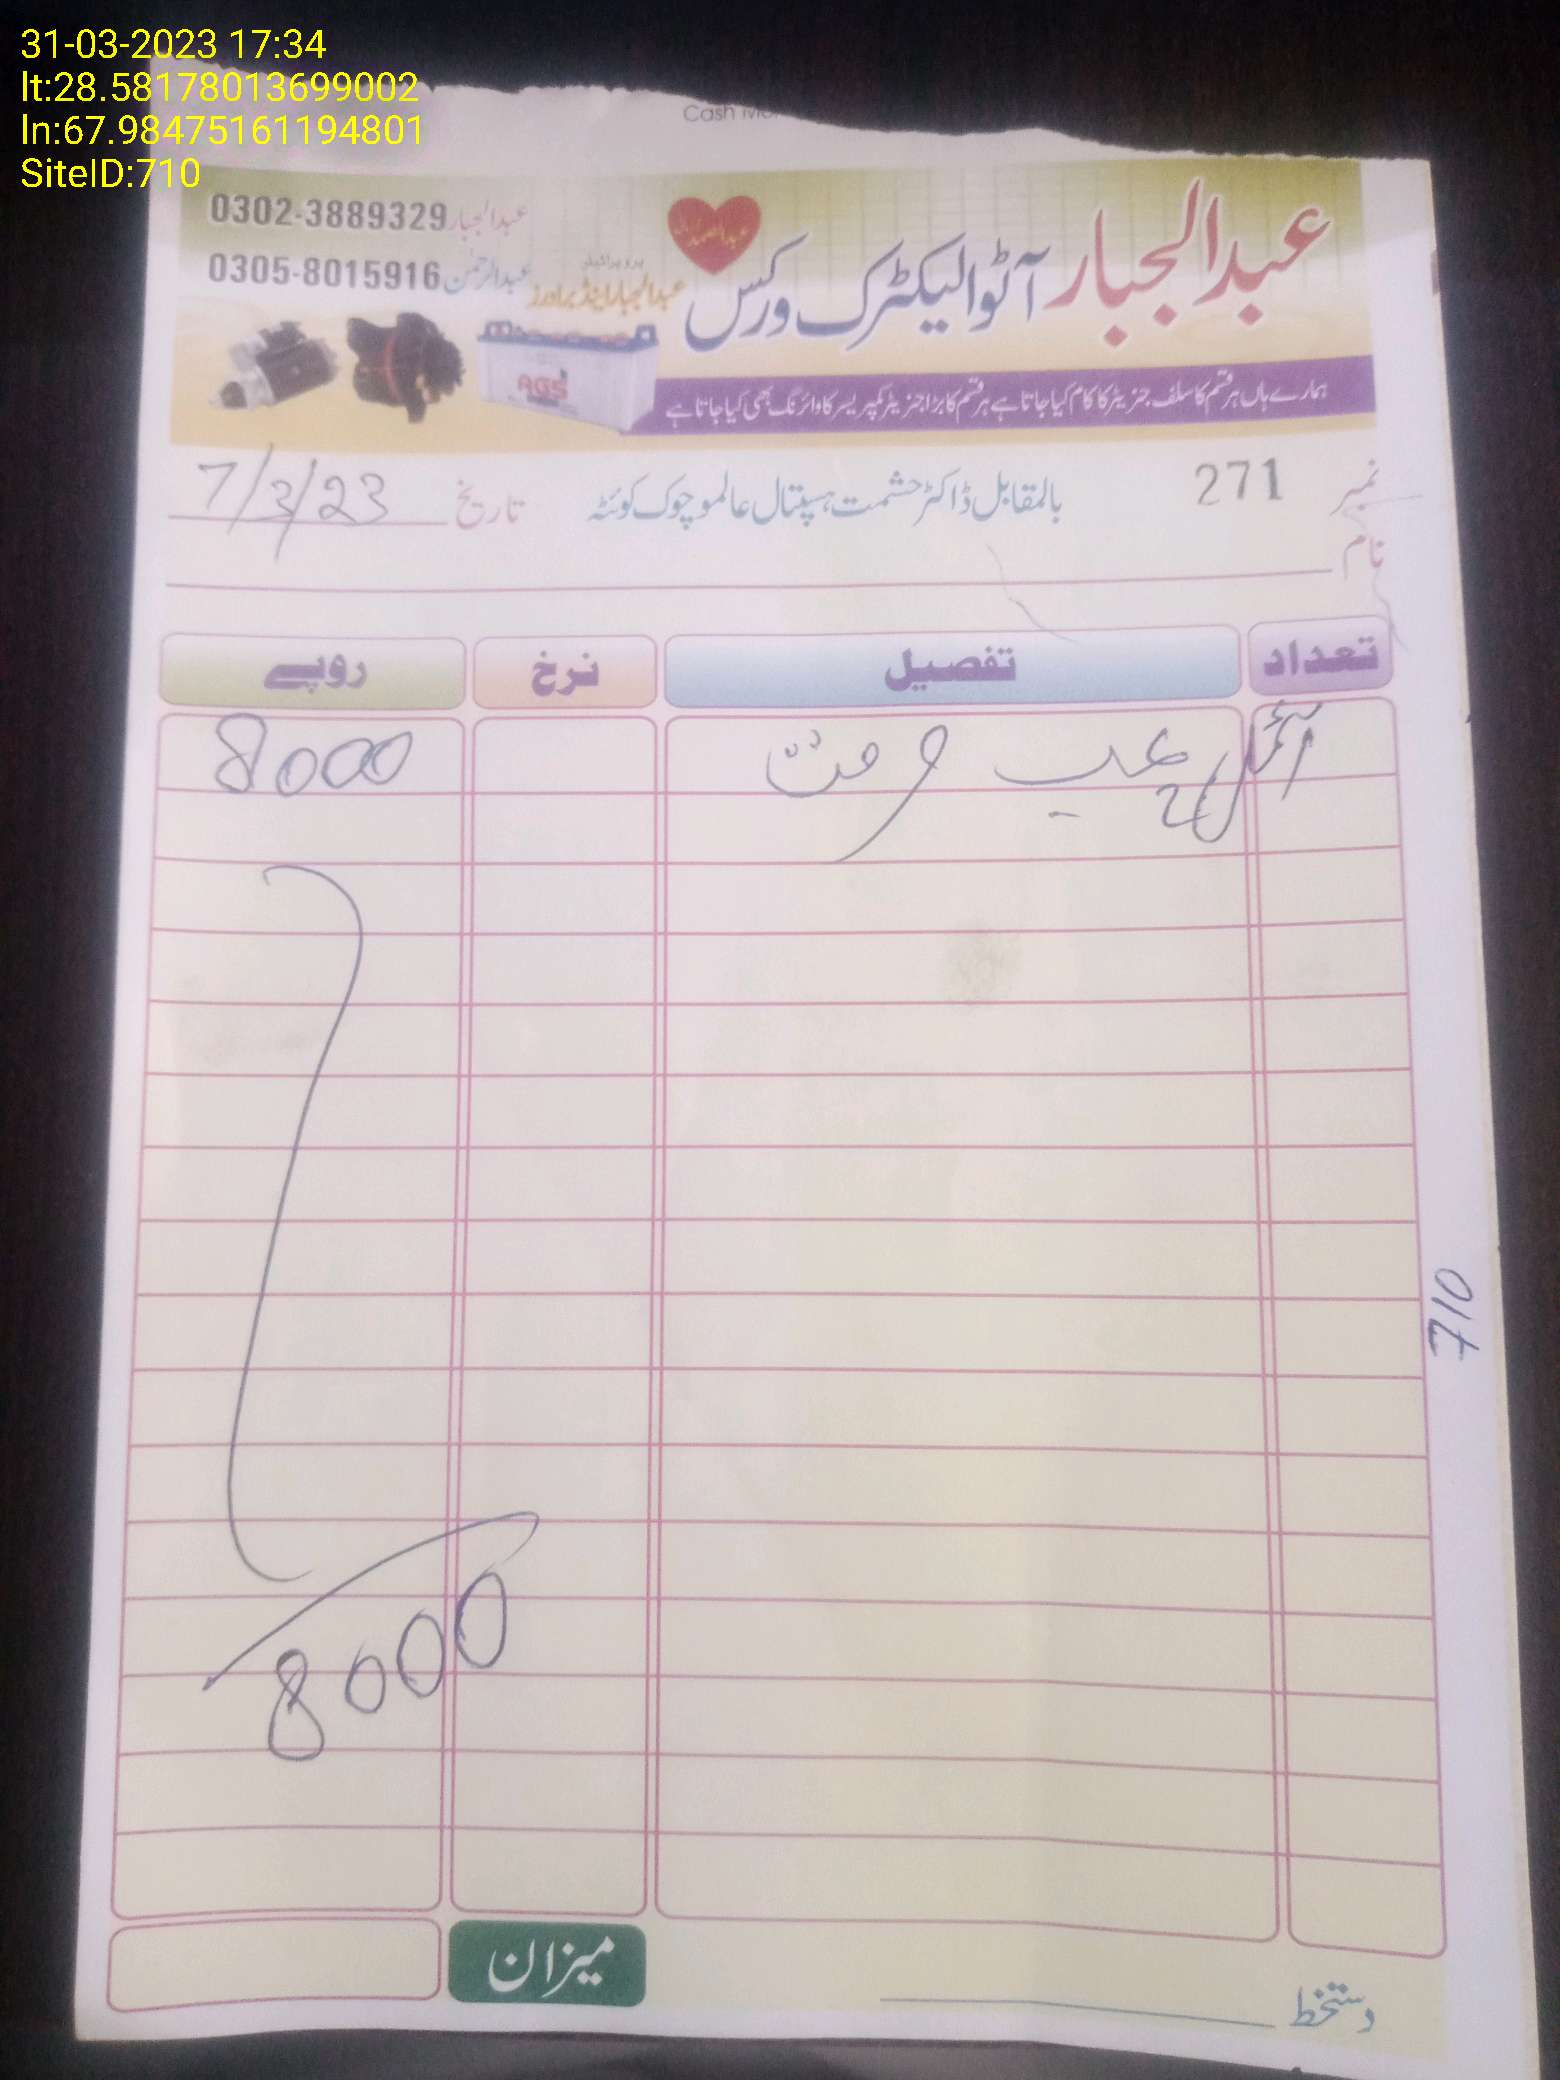 31-03-2023 17:34
lt:28.58178013699002
ln:67.98475161194801
SiteID:710
Cash
عبدالجبار آٹو الیکٹرک ورکس
عبدالصمد
0302-3889329 عبدالجبار
0305-8015916 عبدالرحمٰن
پروپرائیٹر
عبدالجبار اینڈ برادرز
AGS
ہمارے ہاں ہر قسم کا سلف جنریٹر کا کام کیا جاتا ہے ہر قسم کا بڑا جنریٹر کمپریسر کا وائرنگ بھی کیا جاتا ہے
نمبر 271
بالمقابل ڈاکٹر حشمت ہسپتال عالمو چوک کوئٹہ
تاریخ 7/3/23
نام
تعداد تفصیل نرخ روپے
8000
710
8000
میزان
دستخط